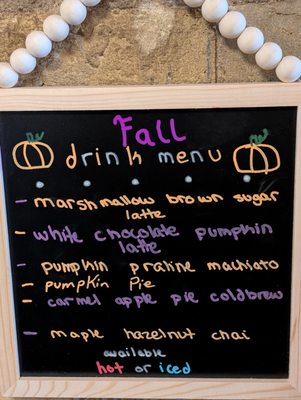 Fall
drink menu
- marshmallow brown sugar
latte
- white chocolate pumpkin
latte
- pumpkin praline machiato
- pumpkin Pie
- carmel apple pie coldbrew
- maple hazelnut chai
available
hot or iced